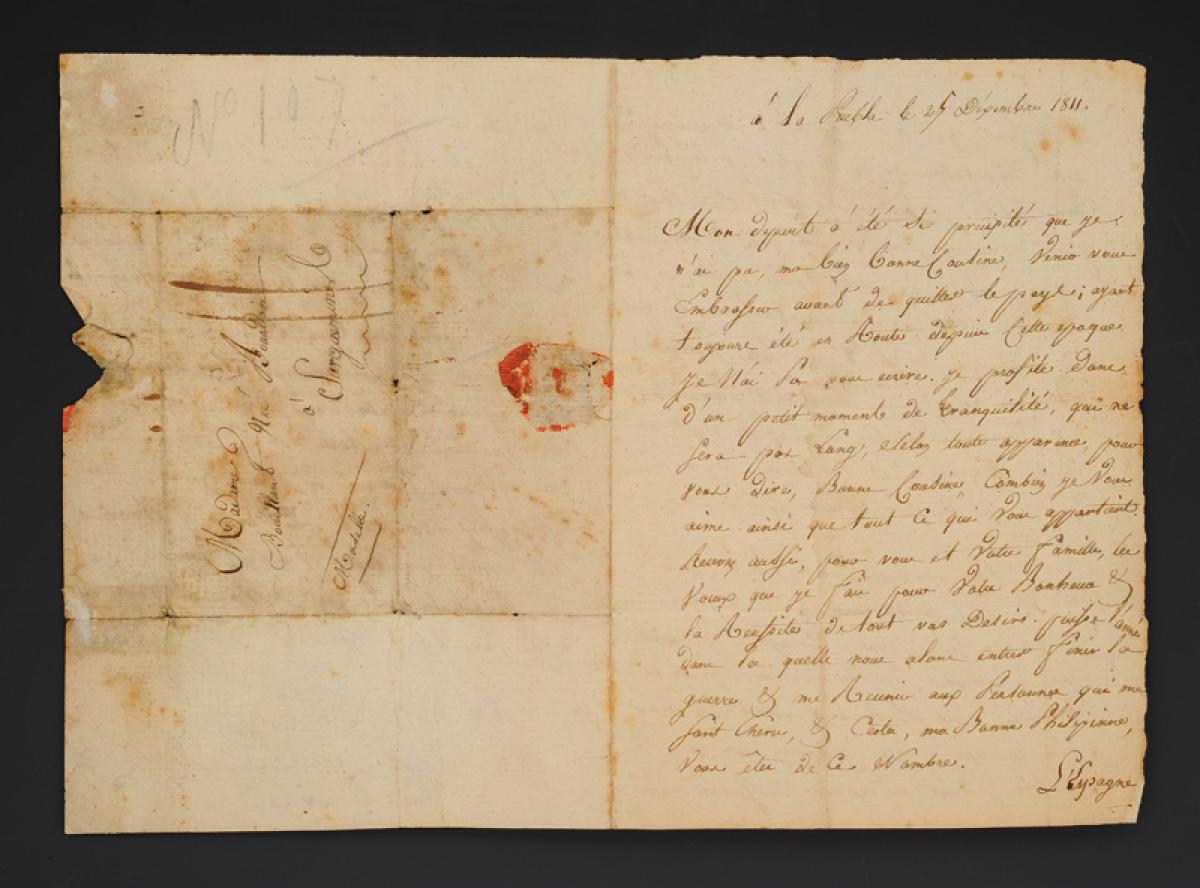 No 107
Madame
Bouillent née Beaudoin
à Sarguemine
Moselle.
à la Puebla le 25 Décembre 1811.
Mon depart à été si precipité que je
n'ai pu, ma bien bonne Cousine, Venir vous
Embrasser avant de quitter le pays; ayant
toujours été en Route depuis Cette epoque
je N'ai Pu vous ecrire. je profite donc
d'un petit moment de tranquilité, qui ne
sera pas Long, selon toute apparence, pour
vous dire, Bonne Cousine Combien je Vous
aime ainsi que tout Ce qui Vous appartient.
Recevez aussi, pour vous et Votre famille, les
Voeux que je fais pour Votre Bonheur &
la Reussite de tout vos Desirs. puisse l'année
dans la quelle nous alons entrer finir la
guerre & me Reunir aux Personnes qui me
sont Cheres, & Certes, ma Bonne Philipinne,
Vous êtes de Ce Nombre.
L'Espagne